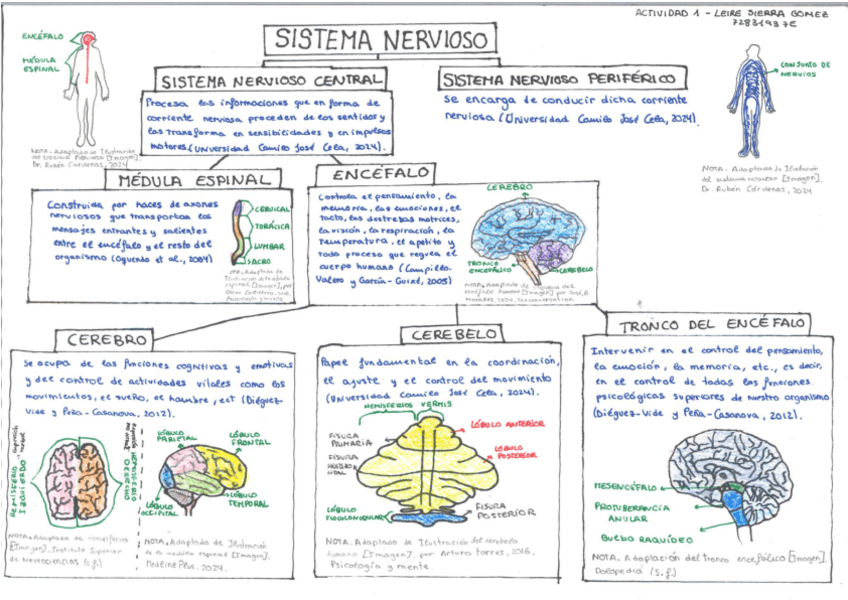 ACTIVIDAD 1 - LEIRE SIERRA GOMEZ
72831937E
SISTEMA NERVIOSO
ENCÉFALO
MÉDULA
ESPINAL
NOTA. Adaptado de Ilustración
del sistema nervioso [Imagen],
Dr. Rubén Cárdenas, 2024
SISTEMA NERVIOSO CENTRAL
Procesa las informaciones que en forma de
corriente nerviosa proceden de los sentidos y
las transforma en sensibilidades y en impulsos
motores. (Universidad Camilo José Cela, 2024).
SISTEMA NERVIOSO PERIFÉRICO
Se encarga de conducir dicha corriente
nerviosa (Universidad Camilo José Cela, 2024).
CONJUNTO DE
NERVIOS
NOTA. Adaptado de Ilustración
del sistema nervioso [Imagen],
Dr. Rubén Cárdenas, 2024
MÉDULA ESPINAL
Construida por haces de axones
nerviosos que transportan los
mensajes entrantes y salientes
entre el encéfalo y el resto del
organismo (Oquendo et al., 2004)
CERVICAL
TORÁCICA
LUMBAR
SACRO
ENCÉFALO
Controla el pensamiento, la
memoria, las emociones, el
tacto, las destrezas motrices,
la visión, la respiración, la
temperatura, el apetito y
todo proceso que regula el
cuerpo humano (Campillo-
Valero y García-Guixé, 2005)
CEREBRO
TRONCO
ENCEFÁLICO
CEREBELO
CEREBRO
Se ocupa de las funciones cognitivas y emotivas
y del control de actividades vitales como los
movimientos, el sueño, el hambre, ect (Diéguez-
Vide y Peña-Casanova, 2012).
HEMISFERIO
IZQUIERDO
HEMISFERIO
DERECHO
LÓBULO
PARIETAL
LÓBULO
FRONTAL
LÓBULO
OCCIPITAL
LÓBULO
TEMPORAL
NOTA. Adaptado de Hemisferios
[Imagen], Instituto Superior
de Neurociencias (s.f.)
NOTA. Adaptado de Ilustración
de la médula espinal [Imagen].
MedlinePlus. 2024.
CEREBELO
Papel fundamental en la coordinación,
el ajuste y el control del movimiento
(Universidad Camilo José Cela, 2024).
HEMISFERIOS VERMIS
FISURA
PRIMARIA
LÓBULO ANTERIOR
LÓBULO
POSTERIOR
FISURA
LÓBULO
FLOCULONODULAR
FISURA
POSTERIOR
NOTA. Adaptado de Ilustración del cerebelo
humano [Imagen], por Arturo Torres, 2016.
Psicología y mente.
TRONCO DEL ENCÉFALO
Intervenir en el control del pensamiento,
la emoción, la memoria, etc., es decir,
en el control de todas las funciones
psicológicas superiores de nuestro organismo
(Diéguez-Vide y Peña-Casanova, 2012).
MESENCÉFALO
PROTUBERANCIA
ANULAR
BULBO RAQUÍDEO
NOTA. Adaptación del tronco encefálico [Imagen]
(s.f.)